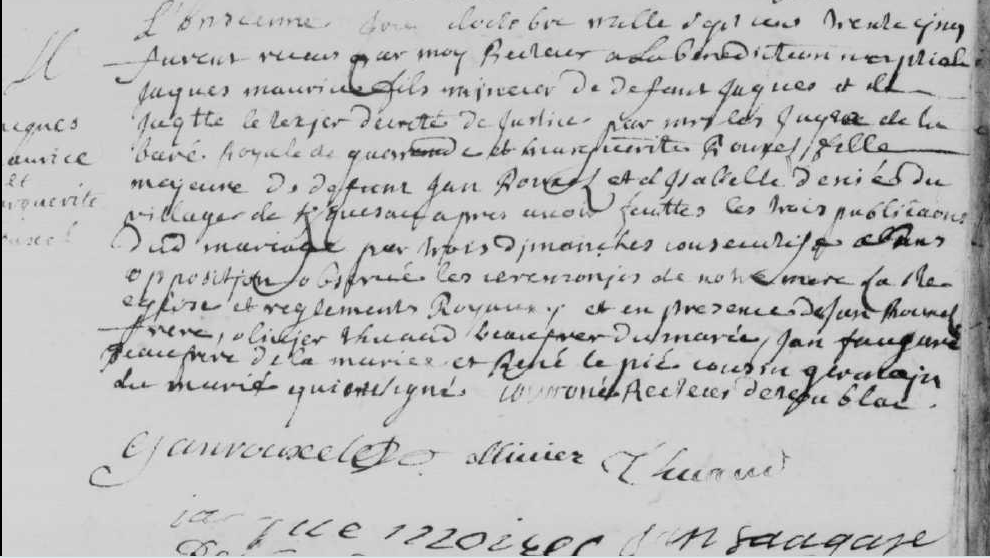 M
Jacques
Maurice
et
Marguerite
Rouxel
L'onzieme jour doctobre mille Sept cens trente cinq
furent receus par moy Recteur a La benediction nuptiale
Jaques maurice fils mineur de defunt Jaques et de
Jugtte le decreté de Justice par mrs les Juges de la
Royale de et marguerite Rouxel, fille
majeure de defunt Jan Rouxel et d Isabelle denié du
village de apres avoir faittes les trois publicaons
dud mariage par trois dimanches consecutifs sans
opposition observé les ceremonies de notre mere la Ste
eglise et reglements Royaux, et en presence de Jan Rouxel
frere, olivier thuaud beaufrere du marié, Jan faugare
beaufrere de la mariee et René le pié cousin germain
du marié qui ont signé Recteur de
Janrouxel ollivier Thuaud
iacque moisec Jan faugare